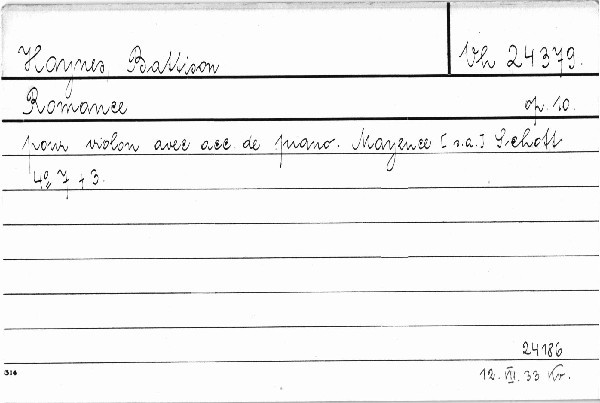 Haynes, Battison Vh 24379.
Romance op. 10.
pour violon avec acc. de piano. Mayence [s.a.] Schott
4º 7 + 3.
24186
314 12. VII. 33 Kr.